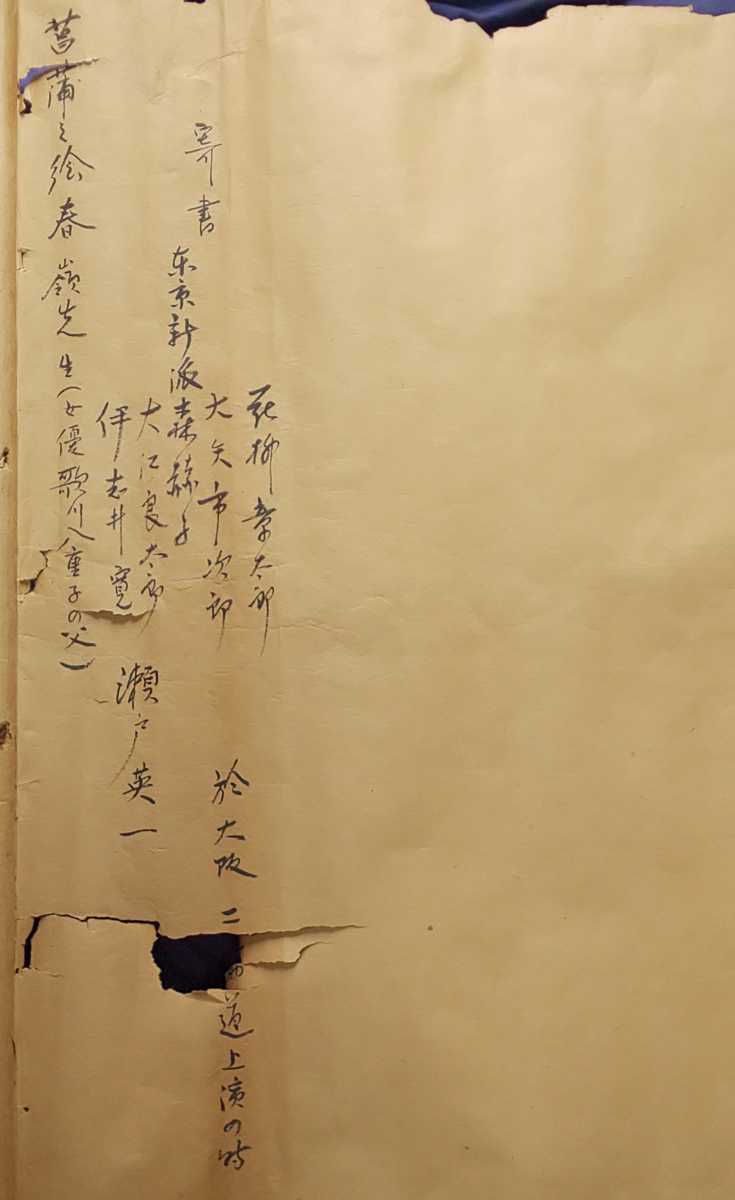 寄書
東京新派
花柳章太郎
大矢市次郎
森赫子
大江良太郎
伊志井寛
瀬戸英一
於大阪 二 道上演の時
菖蒲之絵春嶺先生(女優歌川八重子の父)